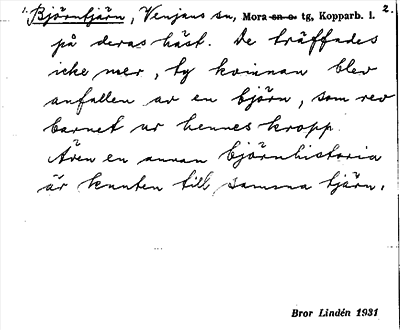 1. Björntjärn, Venjans sn, Mora sn o. tg, Kopparb. l. 2.
på deras häst. De träffades
icke mer, ty kvinnan blev
anfallen av en björn, som rev
barnet ur hennes kropp.
Även en annan björnhistoria
är knuten till samma tjärn.
Bror Lindén 1931